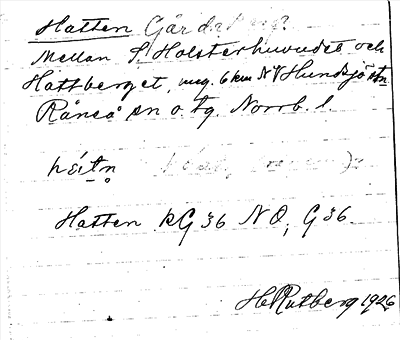 Hatten Gårda
Mellan St Holsterhuvudet och
Hattberget, ung. 6 km NV Hundsjö stn
Råneå sn o. tg. Norrb. l.
hátn̥
Hatten RG 36 NO, G 36.
H. Rutberg 1926